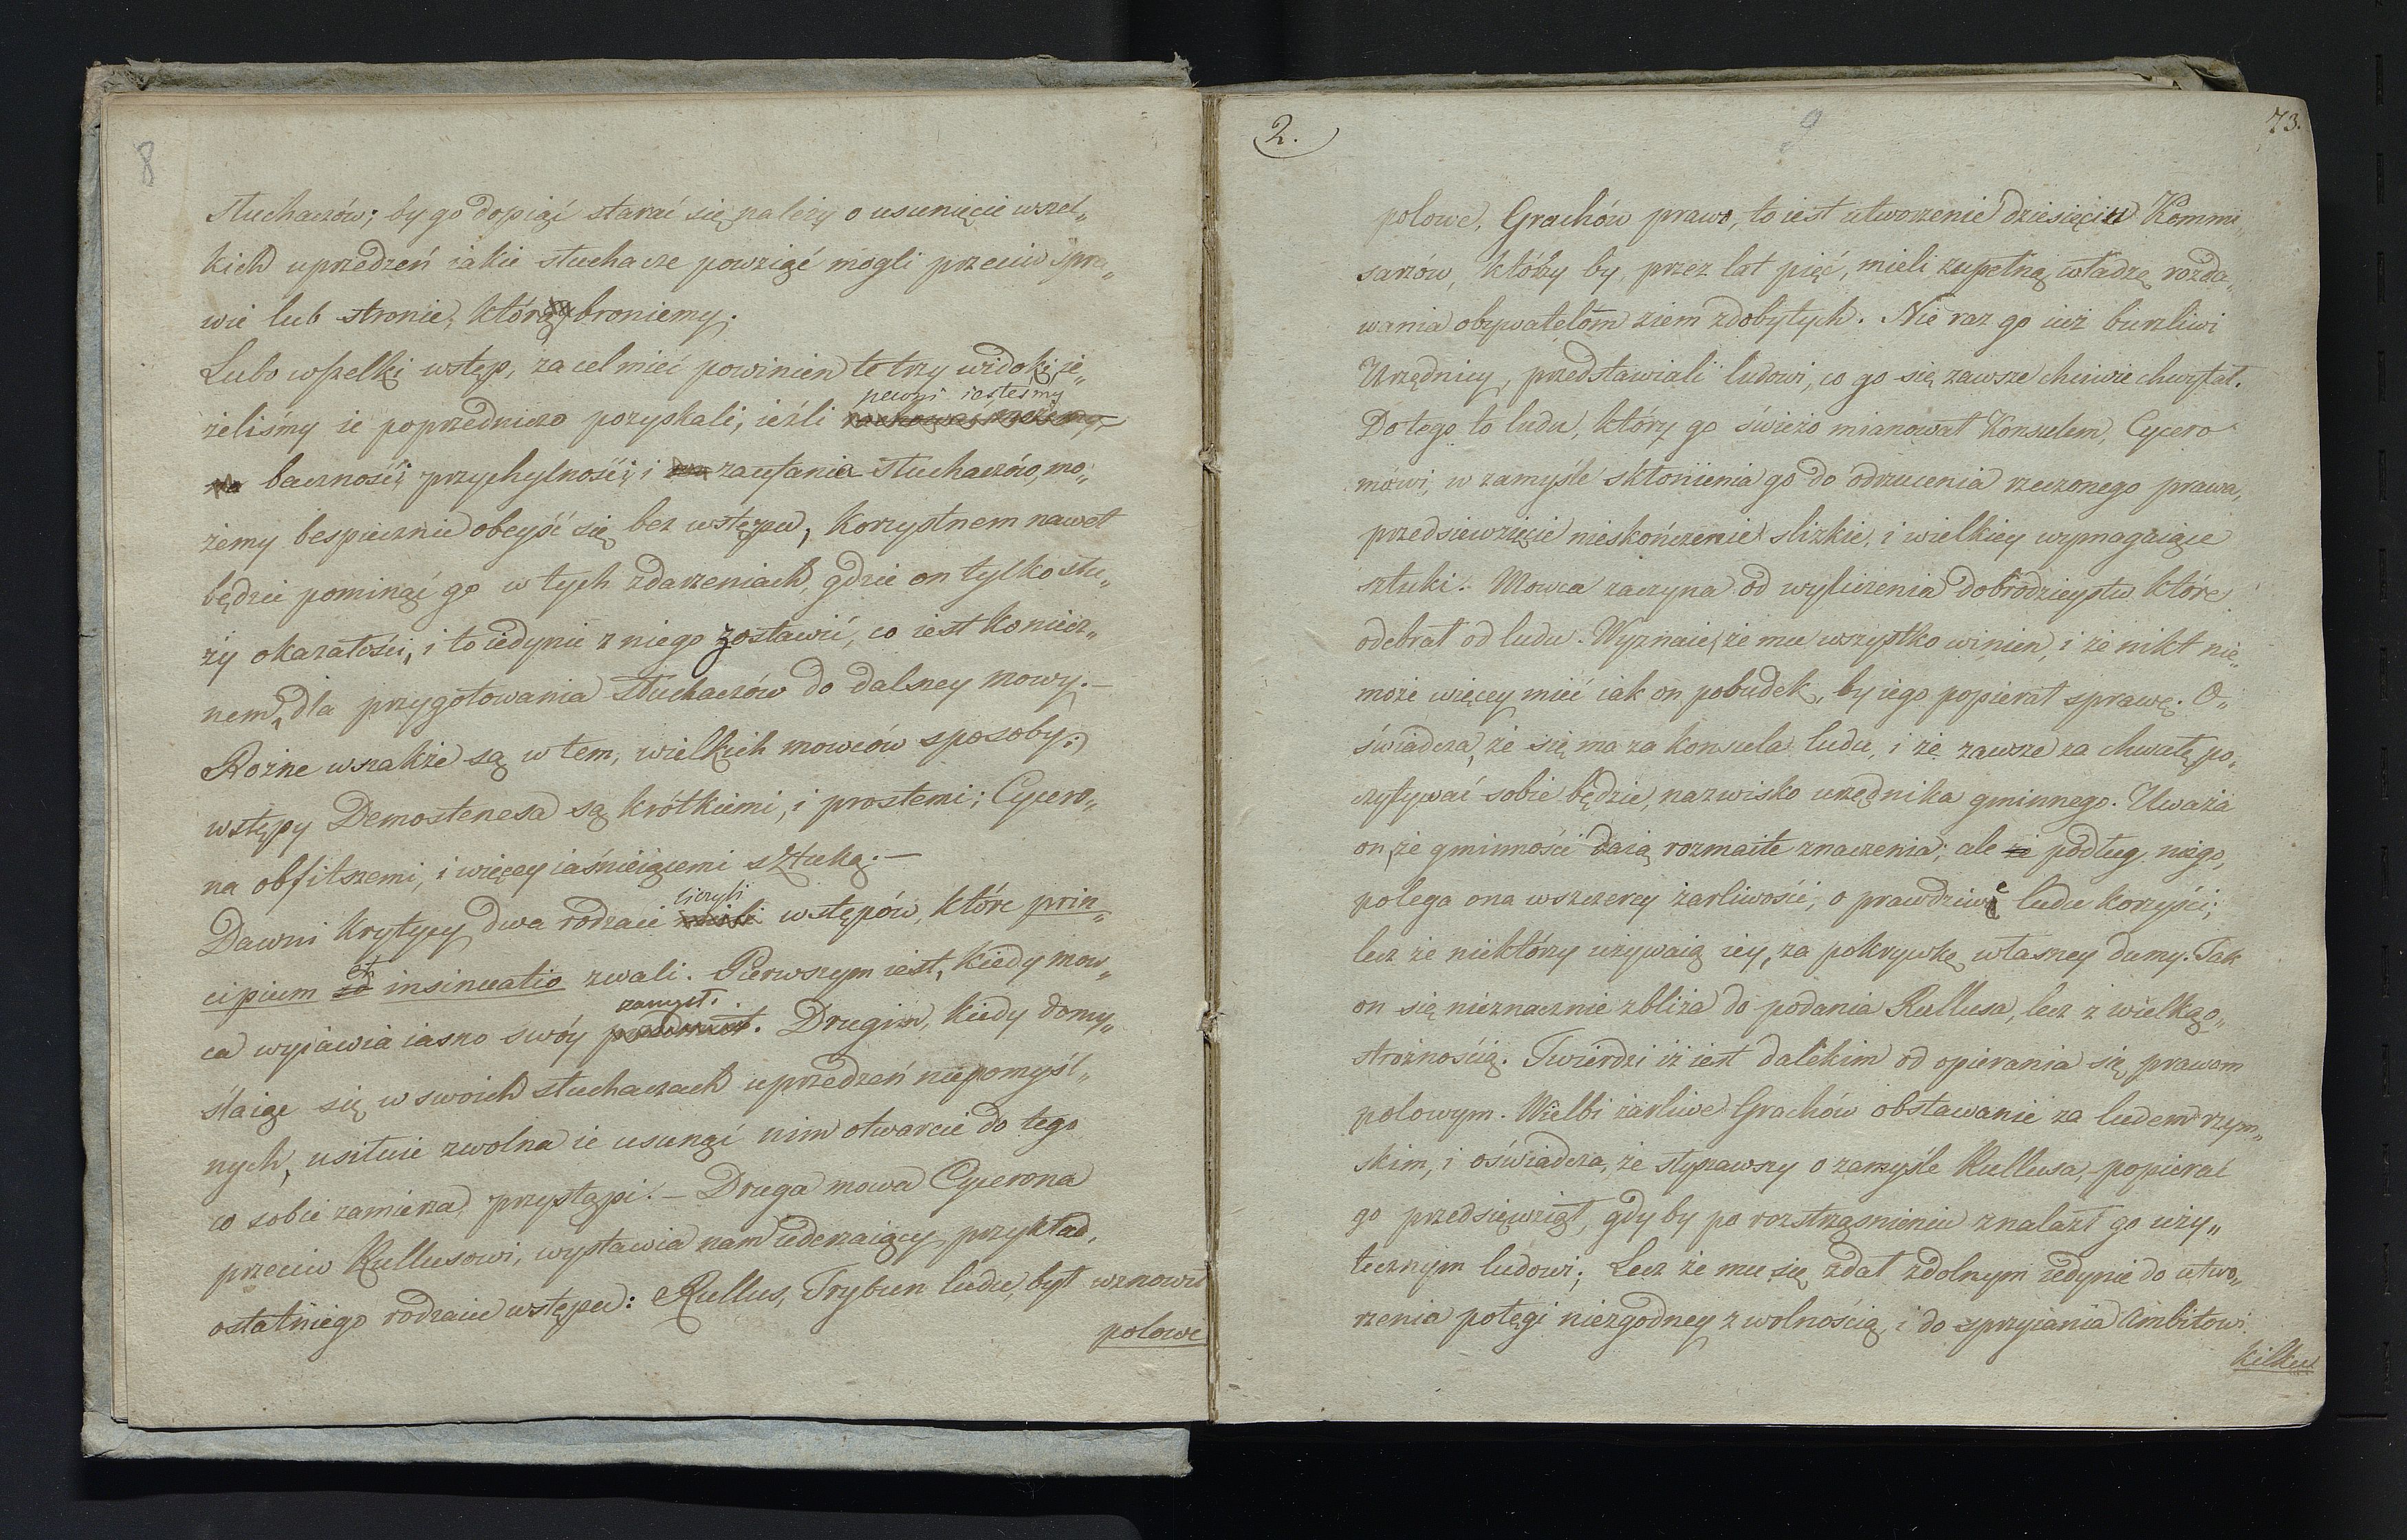 8
słuchaczów; by go dopiąć starać się należy o usunięcie wszel„
kich uprzedzeń iakie słuchacze powziąć mogli przeciw spra„
wie lub stronie, którą broniemy.
Lubo wszelki wstęp, za cel mieć powinien te trzy widoki, ie„
żeliśmy ie poprzedniczo pozyskali, ieźli pewni iesteśmy
baczności, przychylności, i zaufania słuchaczów, mo„
żemy bespiecznie obeyść się bez wstępu, korzystnem nawet
będzie pominąć go w tych zdarzeniach, gdzie on tylko słu„
ży okazałości, i to iedynie z niego zostawić, co iest koniecz„
nem, dla przygotowania słuchaczów do dalszey mowy.—
Rożne wszakże są w tem, wielkich mowców sposoby;
wstępy Demostenesa są krótkiemi, i prostemi; Cycero„
na obfitszemi, i więcey iaśnieiącemi sztuką.—
Dawni krytycy dwa rodzaie liczyli wstępów, które prin„
cipium et insinuatio zwali. Pierwszym iest, kiedy mow„
ca wyiawia iasno swóy zamysł. Drugim, kiedy domy„
ślaiąc się w swoich słuchaczach uprzedzeń niepomyśl„
nych, usiłuie zwolna ie usunąć nim otwarcie do tego
co sobie zamierza, przystąpi.— Druga mowa Cycerona
przeciw Rullusowi, wystawia nam uderzaiący przykład,
ostatniego rodzaiu wstępu: Rullus, Trybun ludu, był wznowił
polowe
2.
9
73.
polowe, Grachów prawo, to iest utworzenie dziesięciu Kommi„
sarzów, którzy by, przez lat pięć, mieli zupełną władzę rozda„
wania obywatelom ziem zdobytych. Nie raz go iuż burzliwi
Urzędnicy, przedstawiali ludowi, co go się zawsze chciwie chwytał.
Do tego to ludu, który go świeżo mianował Konsulem, Cycero
mówi, w zamyśle skłonienia go do odrzucenia rzeczonego prawa,
przedsiewzięcie nieskończenie slizkie, i wielkiey wymagaiące
sztuki. Mowca zaczyna od wyliczenia dobrodzieystw które
odebrał od ludu. Wyznaie, że mu wszystko winien, i że nikt nie„
może więcey mieć iak on pobudek, by iego popierał sprawę. O„
świadcza, że się ma za konsula ludu, i że zawsze za chwałę po„
czytywać sobie będzie, nazwisko urzędnika gminnego. Uważa
on, że gminności daią rozmaite znaczenia; ale podług niego,
polega ona w szczerey żarliwości, o prawdziwe ludu korzyści;
lecz że niektórzy używaią iey, za pokrywkę własney dumy. Tak
on się nieznacznie zbliża do podania Rullusa, lecz z wielką o„
strożnością. Twierdzi iż iest dalekim od opierania się prawom
polowym. Wielbi żarliwe Grachów obstawanie za ludem rzym„
skim, i oświadcza, że słyszawszy o zamyśle Rullusa, popierać
go przedsięwziął, gdy by po roztrząśnieniu znalazł go uży„
tecznym ludowi; Lecz że mu się zdał zdolnym iedynie do utwo„
rzenia potęgi niezgodney z wolnością, i do sprzyiania ambitowi
kilku